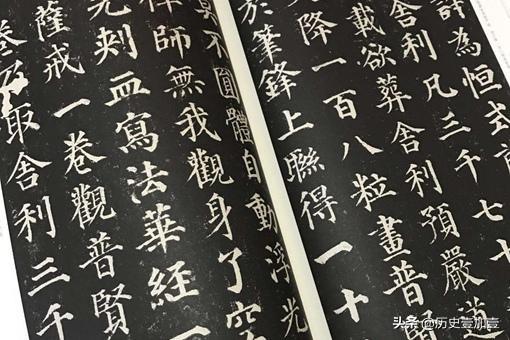 許為恒式前
舍利凡三千七十
載欲葬舍利預嚴道
降一百八粒畫普賢
於筆鋒上聯得一十
莫不圓體自動浮光
禪師無我觀身了空
先刺血寫法華經一
薩戒一卷觀普賢
卷乃取舍利三千
头条 @历史壹加壹